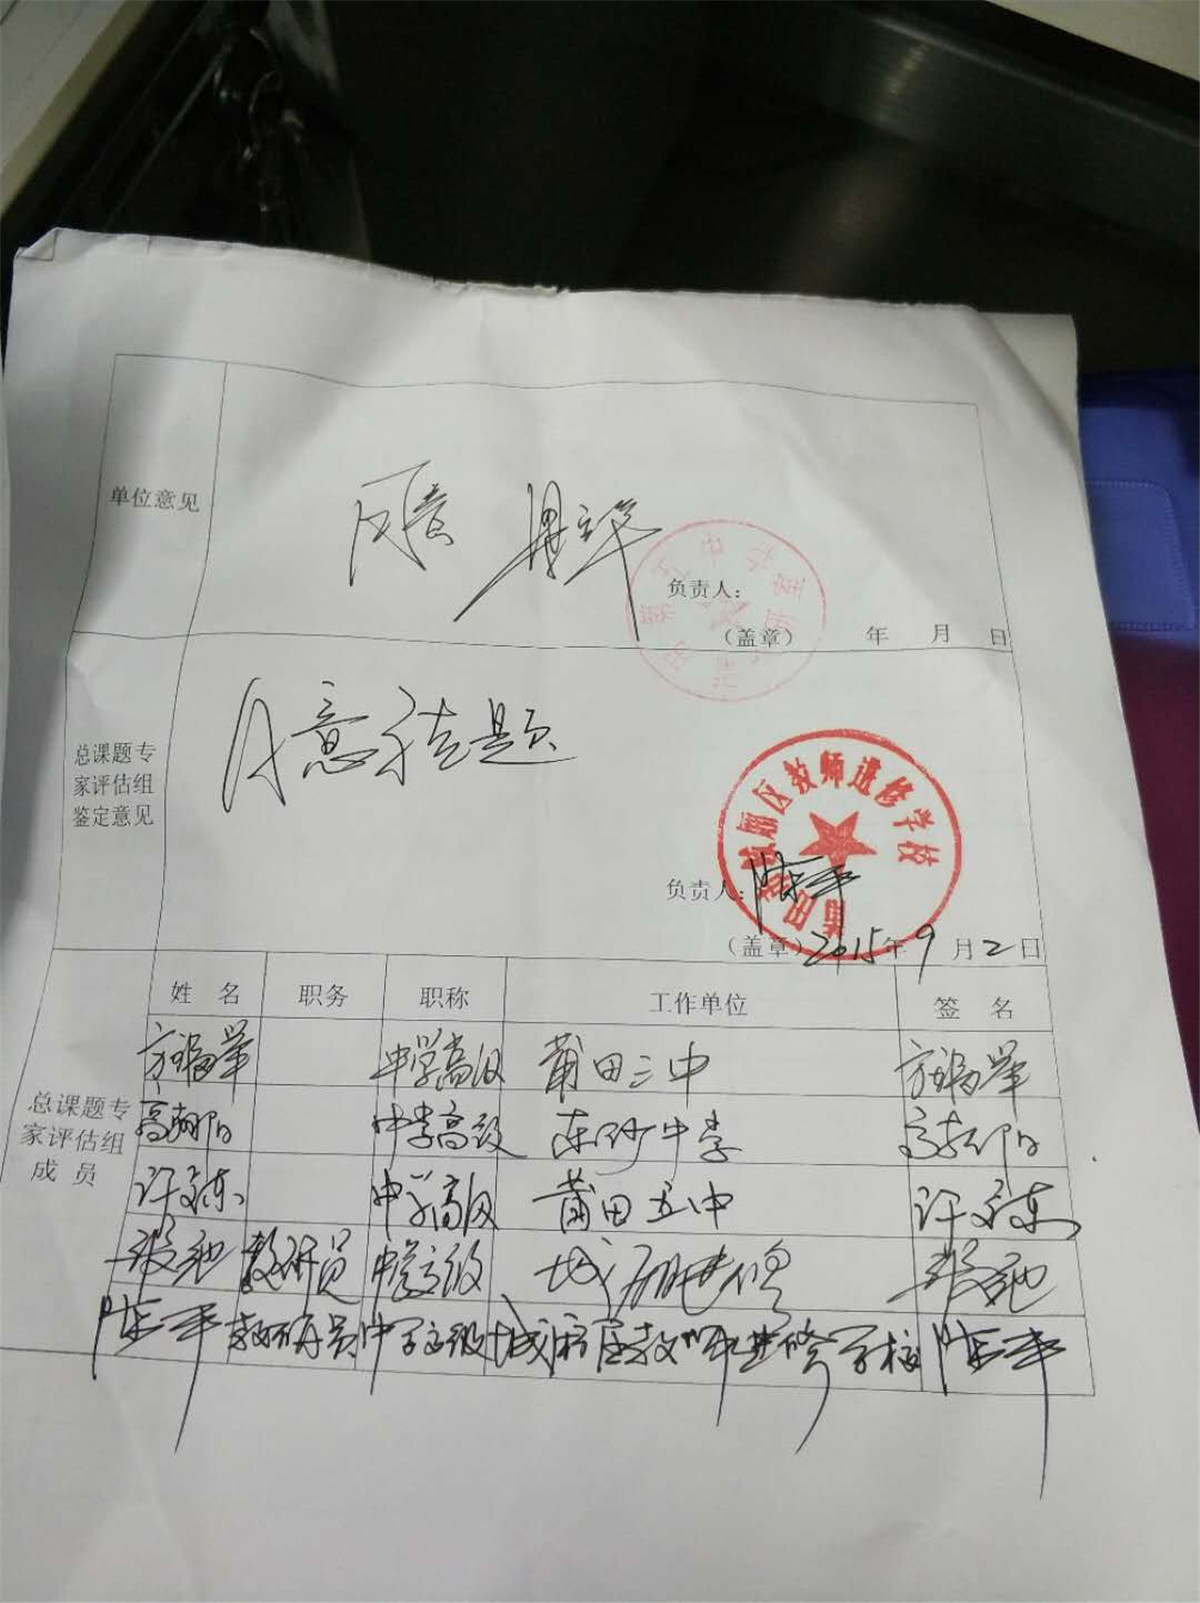 单位意见
同意
负责人：
（盖章） 年 月 日
总课题专
家评估组
鉴定意见
同意结题
莆田市城厢区教师进修学校
负责人：陈平
（盖章）2015年9月2日
姓 名 职务 职称 工作单位 签 名
总课题专
家评估组
成 员
方瑞举 中学高级 莆田三中 方瑞举
高朝阳 中学高级 东沙中学 高朝阳
许东 中学高级 莆田五中 许东
教研员 中学高级 城厢进修
陈平 教研员 中学高级 城厢区教师进修学校 陈平